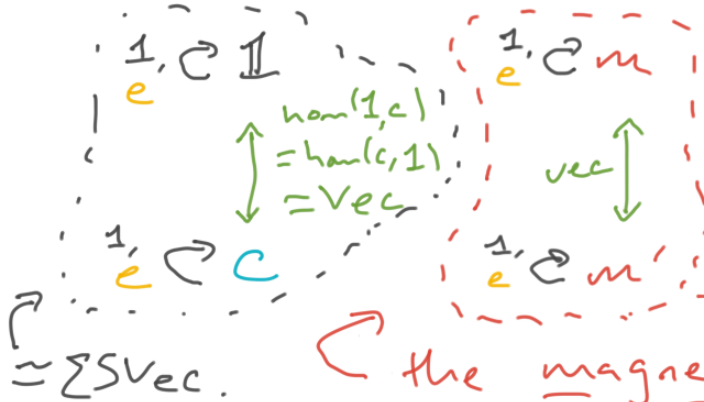 1, e 𝟙
hom(1,c)
=hom(c,1)
=Vec
1, e c
≃ΣSVec.
1, e m
vec
1, e m'
the magne